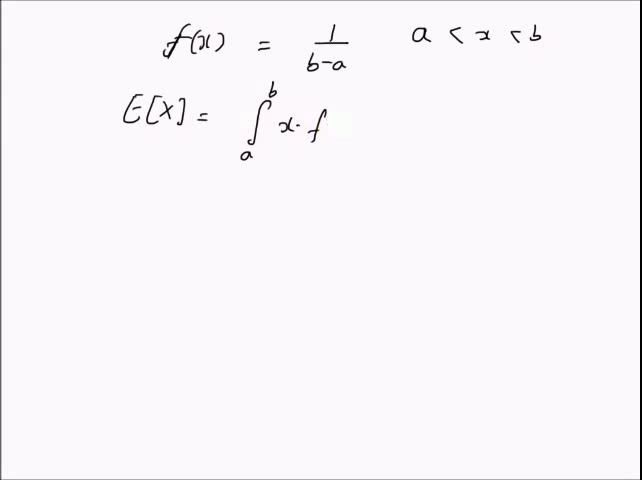 f(x) = 1/(b-a) a < x < b
E[X] = ∫_a^b x · f